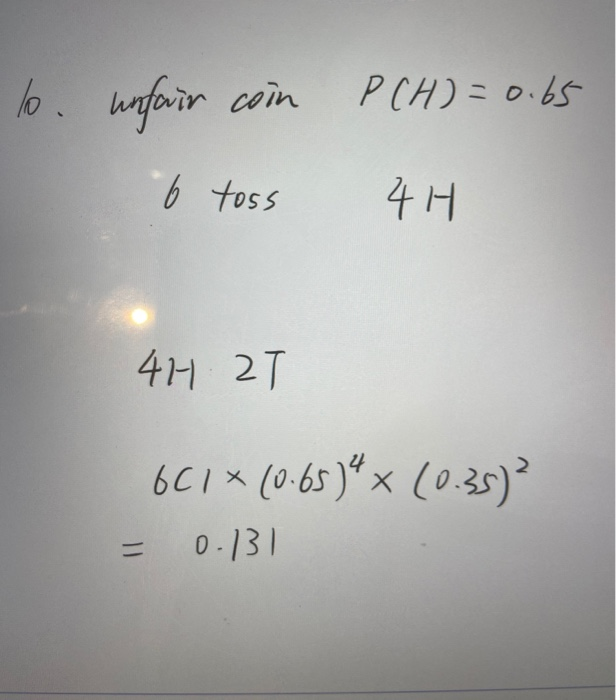 10. unfair coin P(H) = 0.65
6 toss 4H
4H 2T
6C1 × (0.65)⁴ × (0.35)²
= 0.131